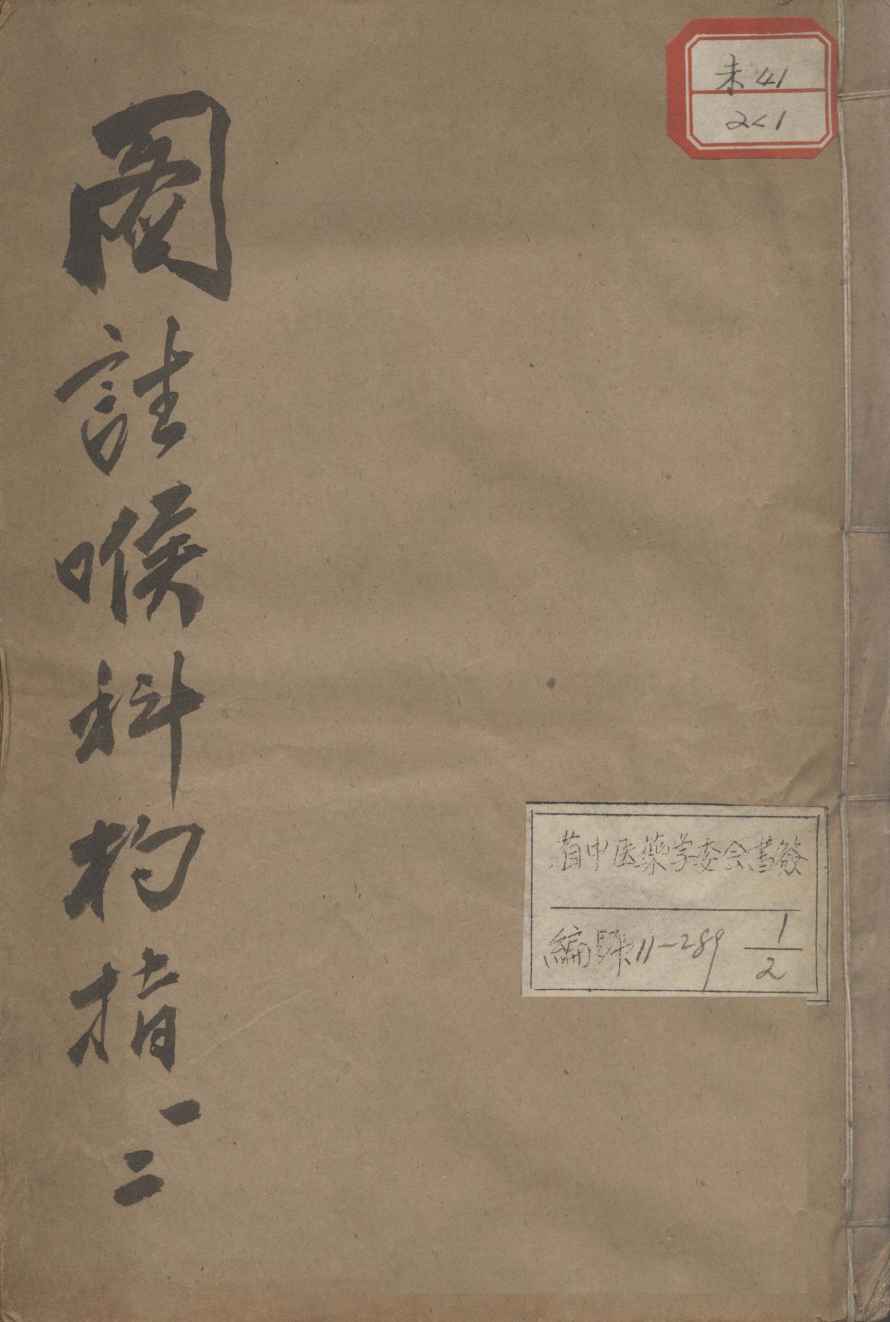 圖註喉科杓指
一
二
未41
2<1
中医藥学委会
編號11-289 1/2